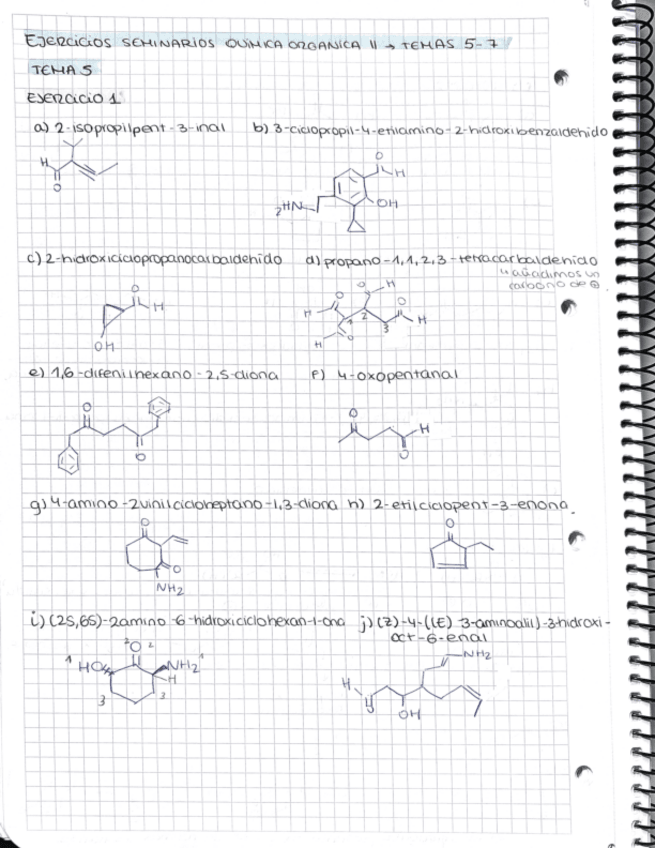 EJERCICIOS SEMINARIOS QUÍMICA ORGANICA II → TEMAS 5-7
TEMA 5
EJERCICIO 1
a) 2-isopropilpent-3-inal b) 3-ciclopropil-4-etilamino-2-hidroxibenzaldehido
H O
O H
2HN OH
c) 2-hidroxiciclopropanocarbaldehido d) propano-1,1,2,3-tetracarbaldehido
↳ añadimos un
carbono de
O H OH
O H O H 1 2 3 O H O H
e) 1,6-difenilhexano-2,5-diona f) 4-oxopentanal
O O
O H O
g) 4-amino-2vinilcicloheptano-1,3-diona h) 2-etilciclopent-3-enona.
O O NH2
O
i) (2S,6S)-2amino-6-hidroxiciclohexan-1-ona j) (Z)-4-((E)-3-aminoalil)-3-hidroxi-
oct-6-enal
2 O 2
1 HO NH2 1
H
3 3
NH2
H
OH